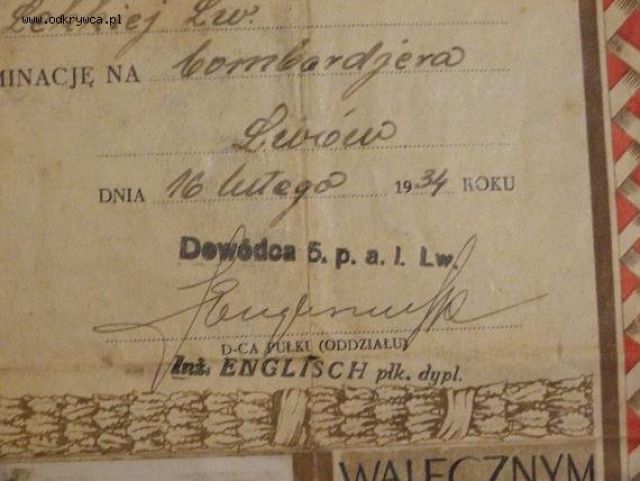 www.odkrywca.pl
Lekkiej Lw.
MINACJĘ NA bombardjera
Lwów
DNIA 16 lutego 1934 ROKU
Dowódca 5. p. a. l. Lw.
D-CA PUŁKU (ODDZIAŁU)
Inż. ENGLISCH płk. dypl.
WALECZNYM